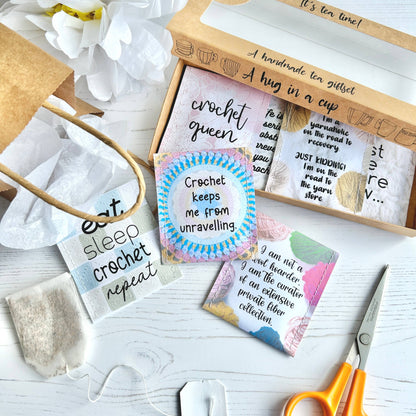 It's tea time!
A handmade tea giftset
A hug in a cup
crochet
queen
I'm a
yarnaholic
on the road to
recovery
JUST KIDDING!
I'm on the
road to
the yarn
store.
Crochet
keeps
me from
unravelling.
eat
sleep
crochet
repeat
I am not a
wool hoarder
I am the curator
of an extensive
private fiber
collection.